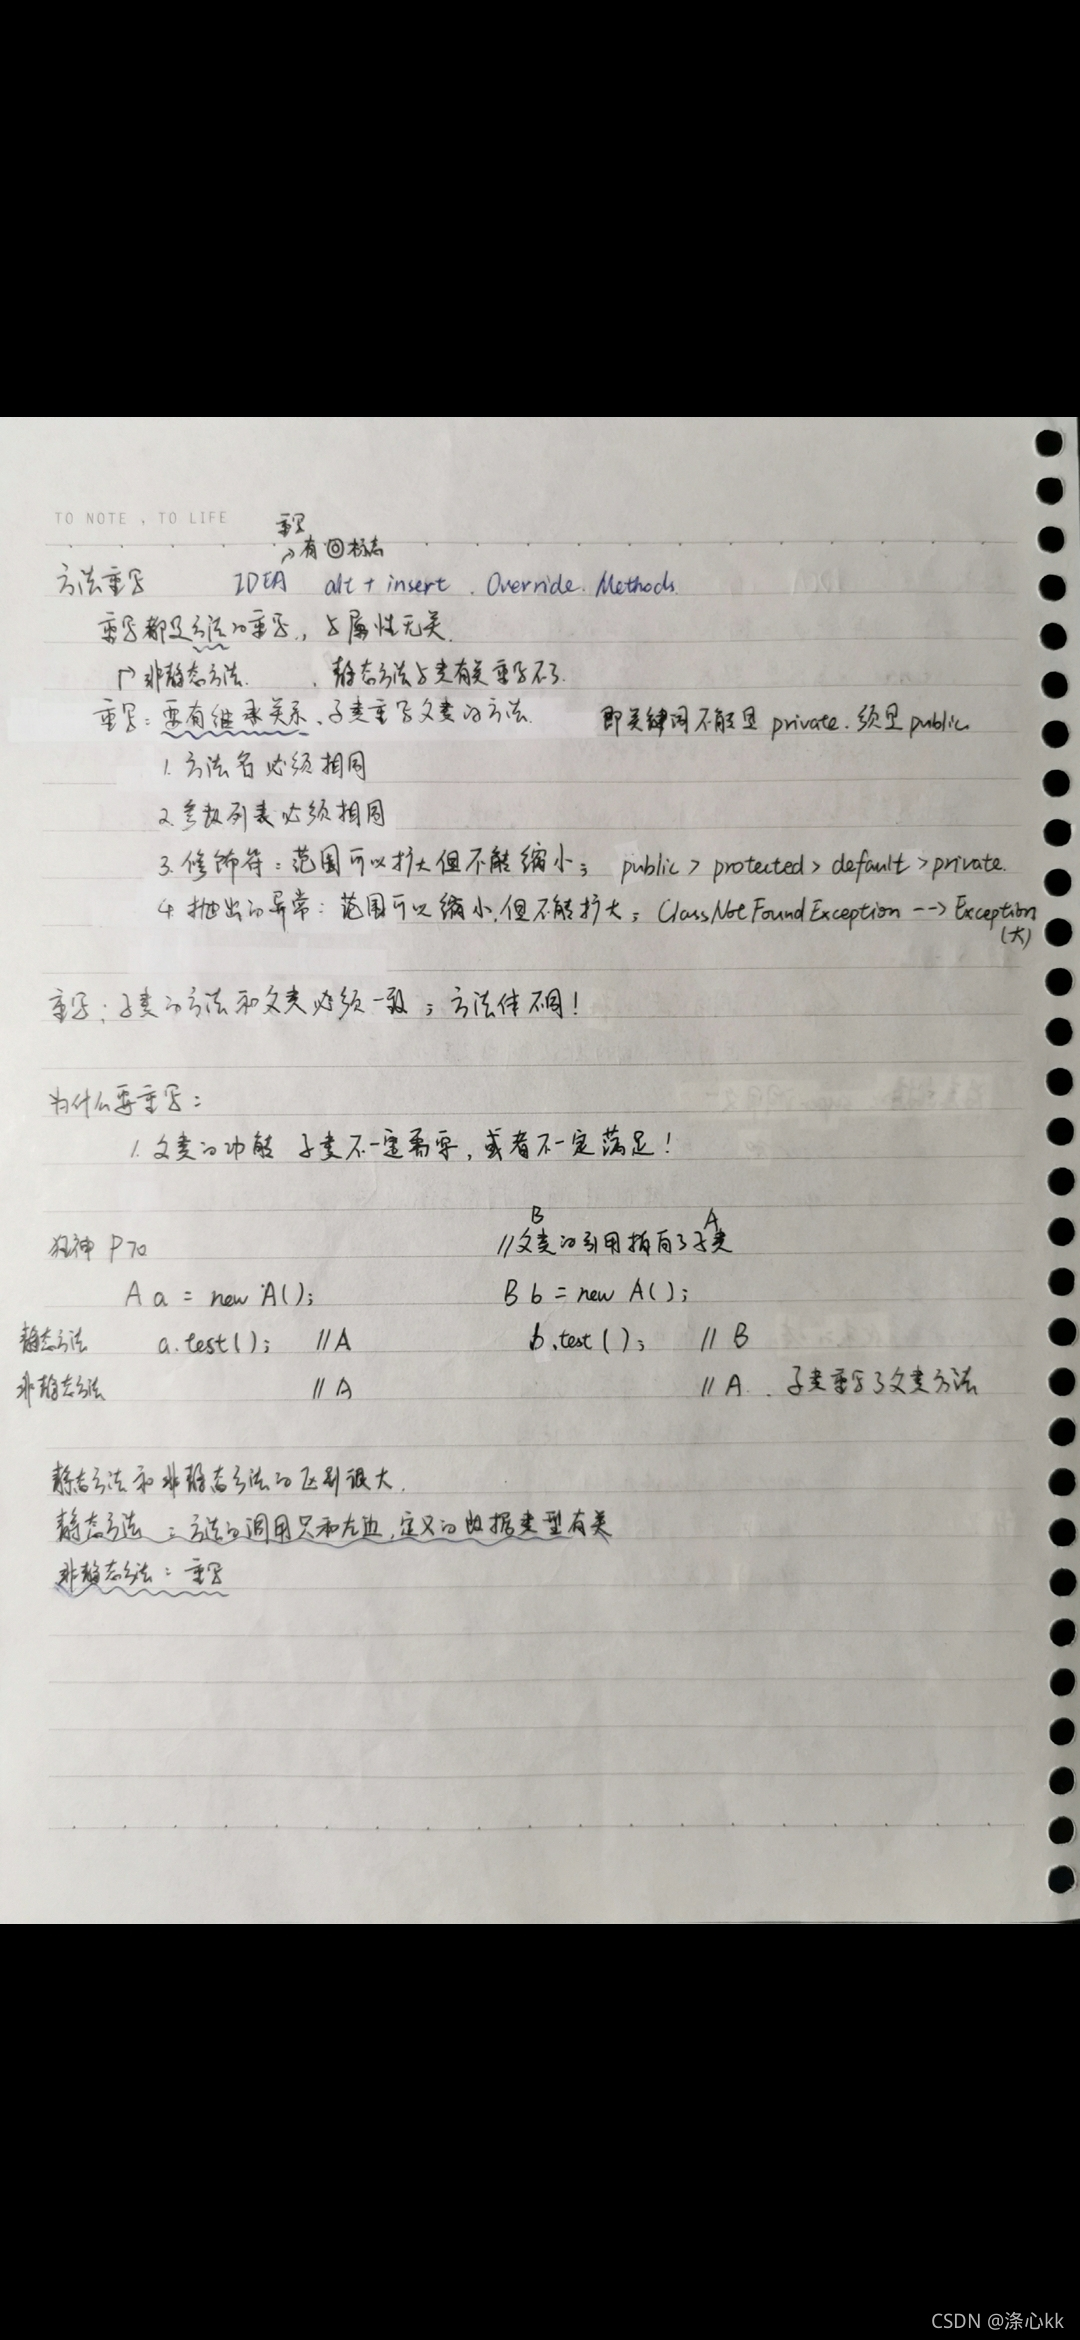 TO NOTE , TO LIFE
重写
→有◎标志
方法重写 IDEA alt + insert . Override Methods.
重写都是方法的重写, 与属性无关.
非静态方法. . 静态方法与类有关重写不了.
重写: 需有继承关系、子类重写父类的方法. 即关键词不能是 private. 须是 public.
1. 方法名必须相同
2. 参数列表必须相同
3. 修饰符: 范围可以扩大但不能缩小; public > protected > default > private.
4. 抛出的异常: 范围可以缩小,但不能扩大; ClassNotFoundException --> Exception
(大)
重写: 子类的方法和父类必须一致; 方法体不同!
为什么要重写:
1. 父类的功能 子类不一定需要, 或者不一定满足!
B A
狂神 P70 //父类的引用指向了子类
A a = new A(); B b = new A();
静态方法 a.test(); //A b.test(); // B
非静态方法 //A // A . 子类重写了父类方法
静态方法和非静态方法的区别很大.
静态方法 : 方法的调用只和左边,定义的数据类型有关
非静态方法: 重写
CSDN @涤心kk